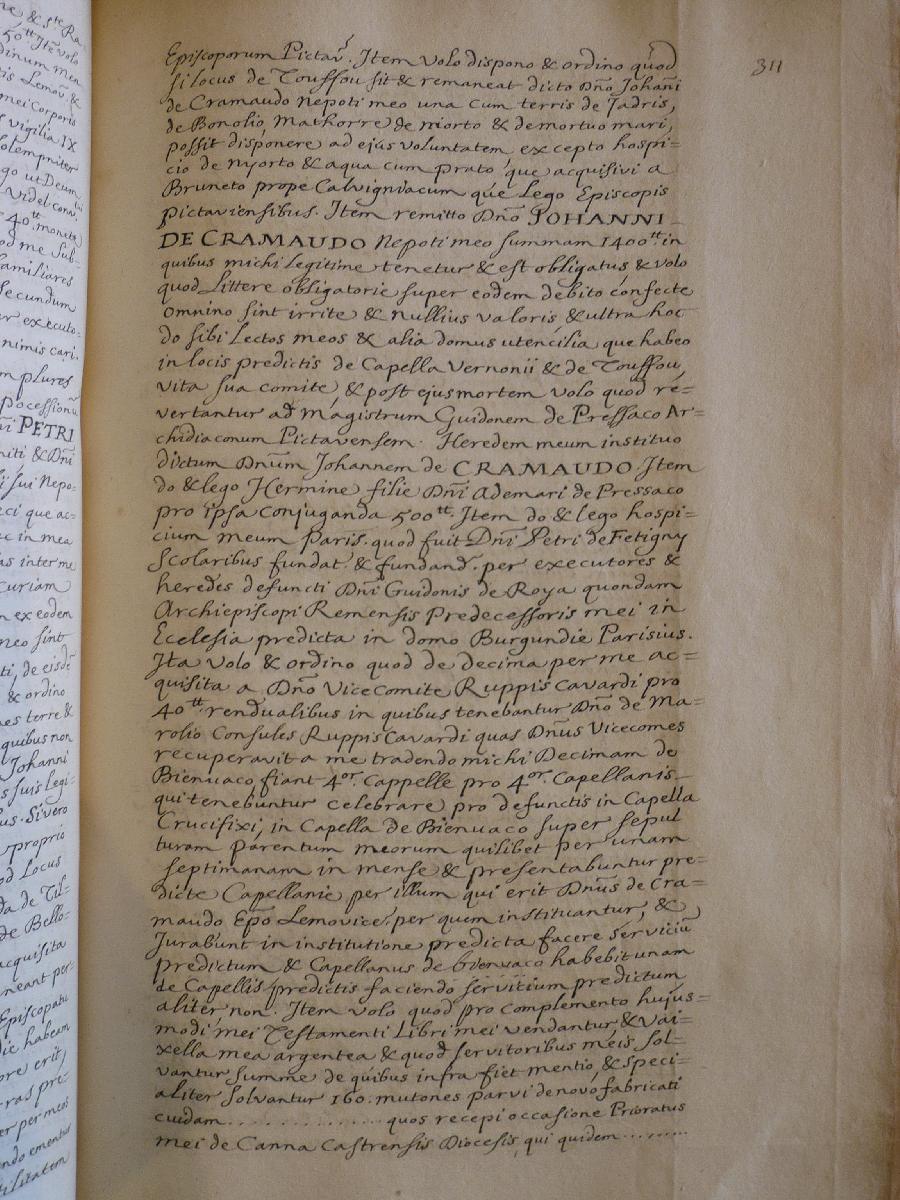 311
Episcoporum Pictav̄. Item volo dispono & ordino quod
si locus de Touffou sit & remaneat dicto Dño Johañi
de Cramaudo nepoti meo una cum terris de Jadris,
de Bonolio, Mathorre de niorto & de mortuo mari,
possit disponere ad ejus voluntatem excepto hospi=
cio de nyorto & aqua cum prato que acquisivi a
Bruneto prope Calvigniacum que Lego Episcopis
pictaviensibus. Item remitto Dño JOHANNI
DE CRAMAUDO Nepoti meo summam 1400tt in
quibus michi legitime tenetur & est obligatus & volo
quod Littere obligatorie super eodem debito confecte
omnino sint irrite & nullius valoris & ultra hoc
do sibi Lectos meos & alia domus utencilia que habeo
in locis predictis de Capella Vernonii & de Touffou,
vita sua comite, & post ejus mortem volo quod re=
vertantur ad Magistrum Guidonem de Pressaco Ar=
chidiaconum Pictavensem. Heredem meum instituo
dictum Dñum Johannem de CRAMAUDO. Item
do & lego Hermine filie Dñi Ademari de Pressaco
pro ipsa conjuganda 500tt. Item do & lego hospi=
cium meum Paris. quod fuit Dñi Petri de Fetigny
Scolaribus fundat. & fundand. per executores &
heredes defuncti Dñi Guidonis de Roya quondam
Archiepiscopi Remensis Predecessoris mei in
Ecclesia predicta in domo Burgundie Parisius.
Ita volo & ordino quod de decima per me ac=
quisita a Dño ViceComite Ruppis cavardi pro
40tt rendualibus in quibus tenebantur Dño de Ma=
rolio Consules Ruppis Cavardi quas Dñus Vicecomes
recuperavit a me tradendo michi Decimam de
Bienuaco fiant 4or Cappelle pro 4or Capellanis
qui tenebuntur celebrare pro defunctis in Capella
Crucifixi, in Capella de Bienuaco super sepul
turam parentum meorum quilibet per unam
septimanam in mense & presentabuntur pre=
dicte Capellanie per illum qui erit Dñus de Cra=
maudo Epo Lemovice. per quem instituantur, &
Jurabunt in institutione predicta facere serviciū
predictum & Capellanus de bienuaco habebit unam
de Capellis predictis faciendo servitium predictum
aliter non. Item volo quod pro complemento hujus=
modi mei Testamenti Libri mei vendantur & vai=
xella mea argentea & quod servitoribus meis sol=
vantur summe de quibus infra fiet mentio, & speci=
aliter solvantur 160. mutones parvi denovo fabricati
cuidam............. quos recepi occasione Prioratus
mei de Canna Castrensis Diocesis, qui quidem........